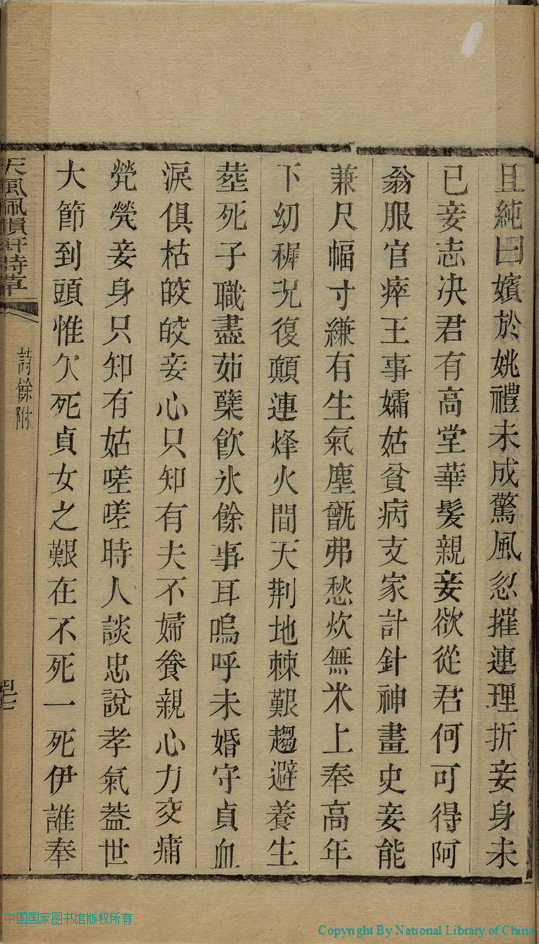 且純白嬪於姚禮未成驚風忽摧連理折妾身未
已妾志决君有高堂華髮親妾欲從君何可得阿
翁服官瘁王事孀姑貧病支家計針神畫史妾能
兼尺幅寸縑有生氣塵甑弗愁炊無米上奉高年
下幼穉况復顛連烽火間天荆地棘艱趨避養生
塟死子職盡茹蘗飮氷餘事耳嗚呼未婚守貞血
淚俱枯皎皎妾心只知有夫不婦養親心力交痡
煢煢妾身只知有姑嗟嗟時人談忠說孝氣葢世
大節到頭惟欠死貞女之艱在不死一死伊誰奉
天風佩
軒詩草
詩餘附
中国国家图书馆版权所有
Copyright By National Library of China